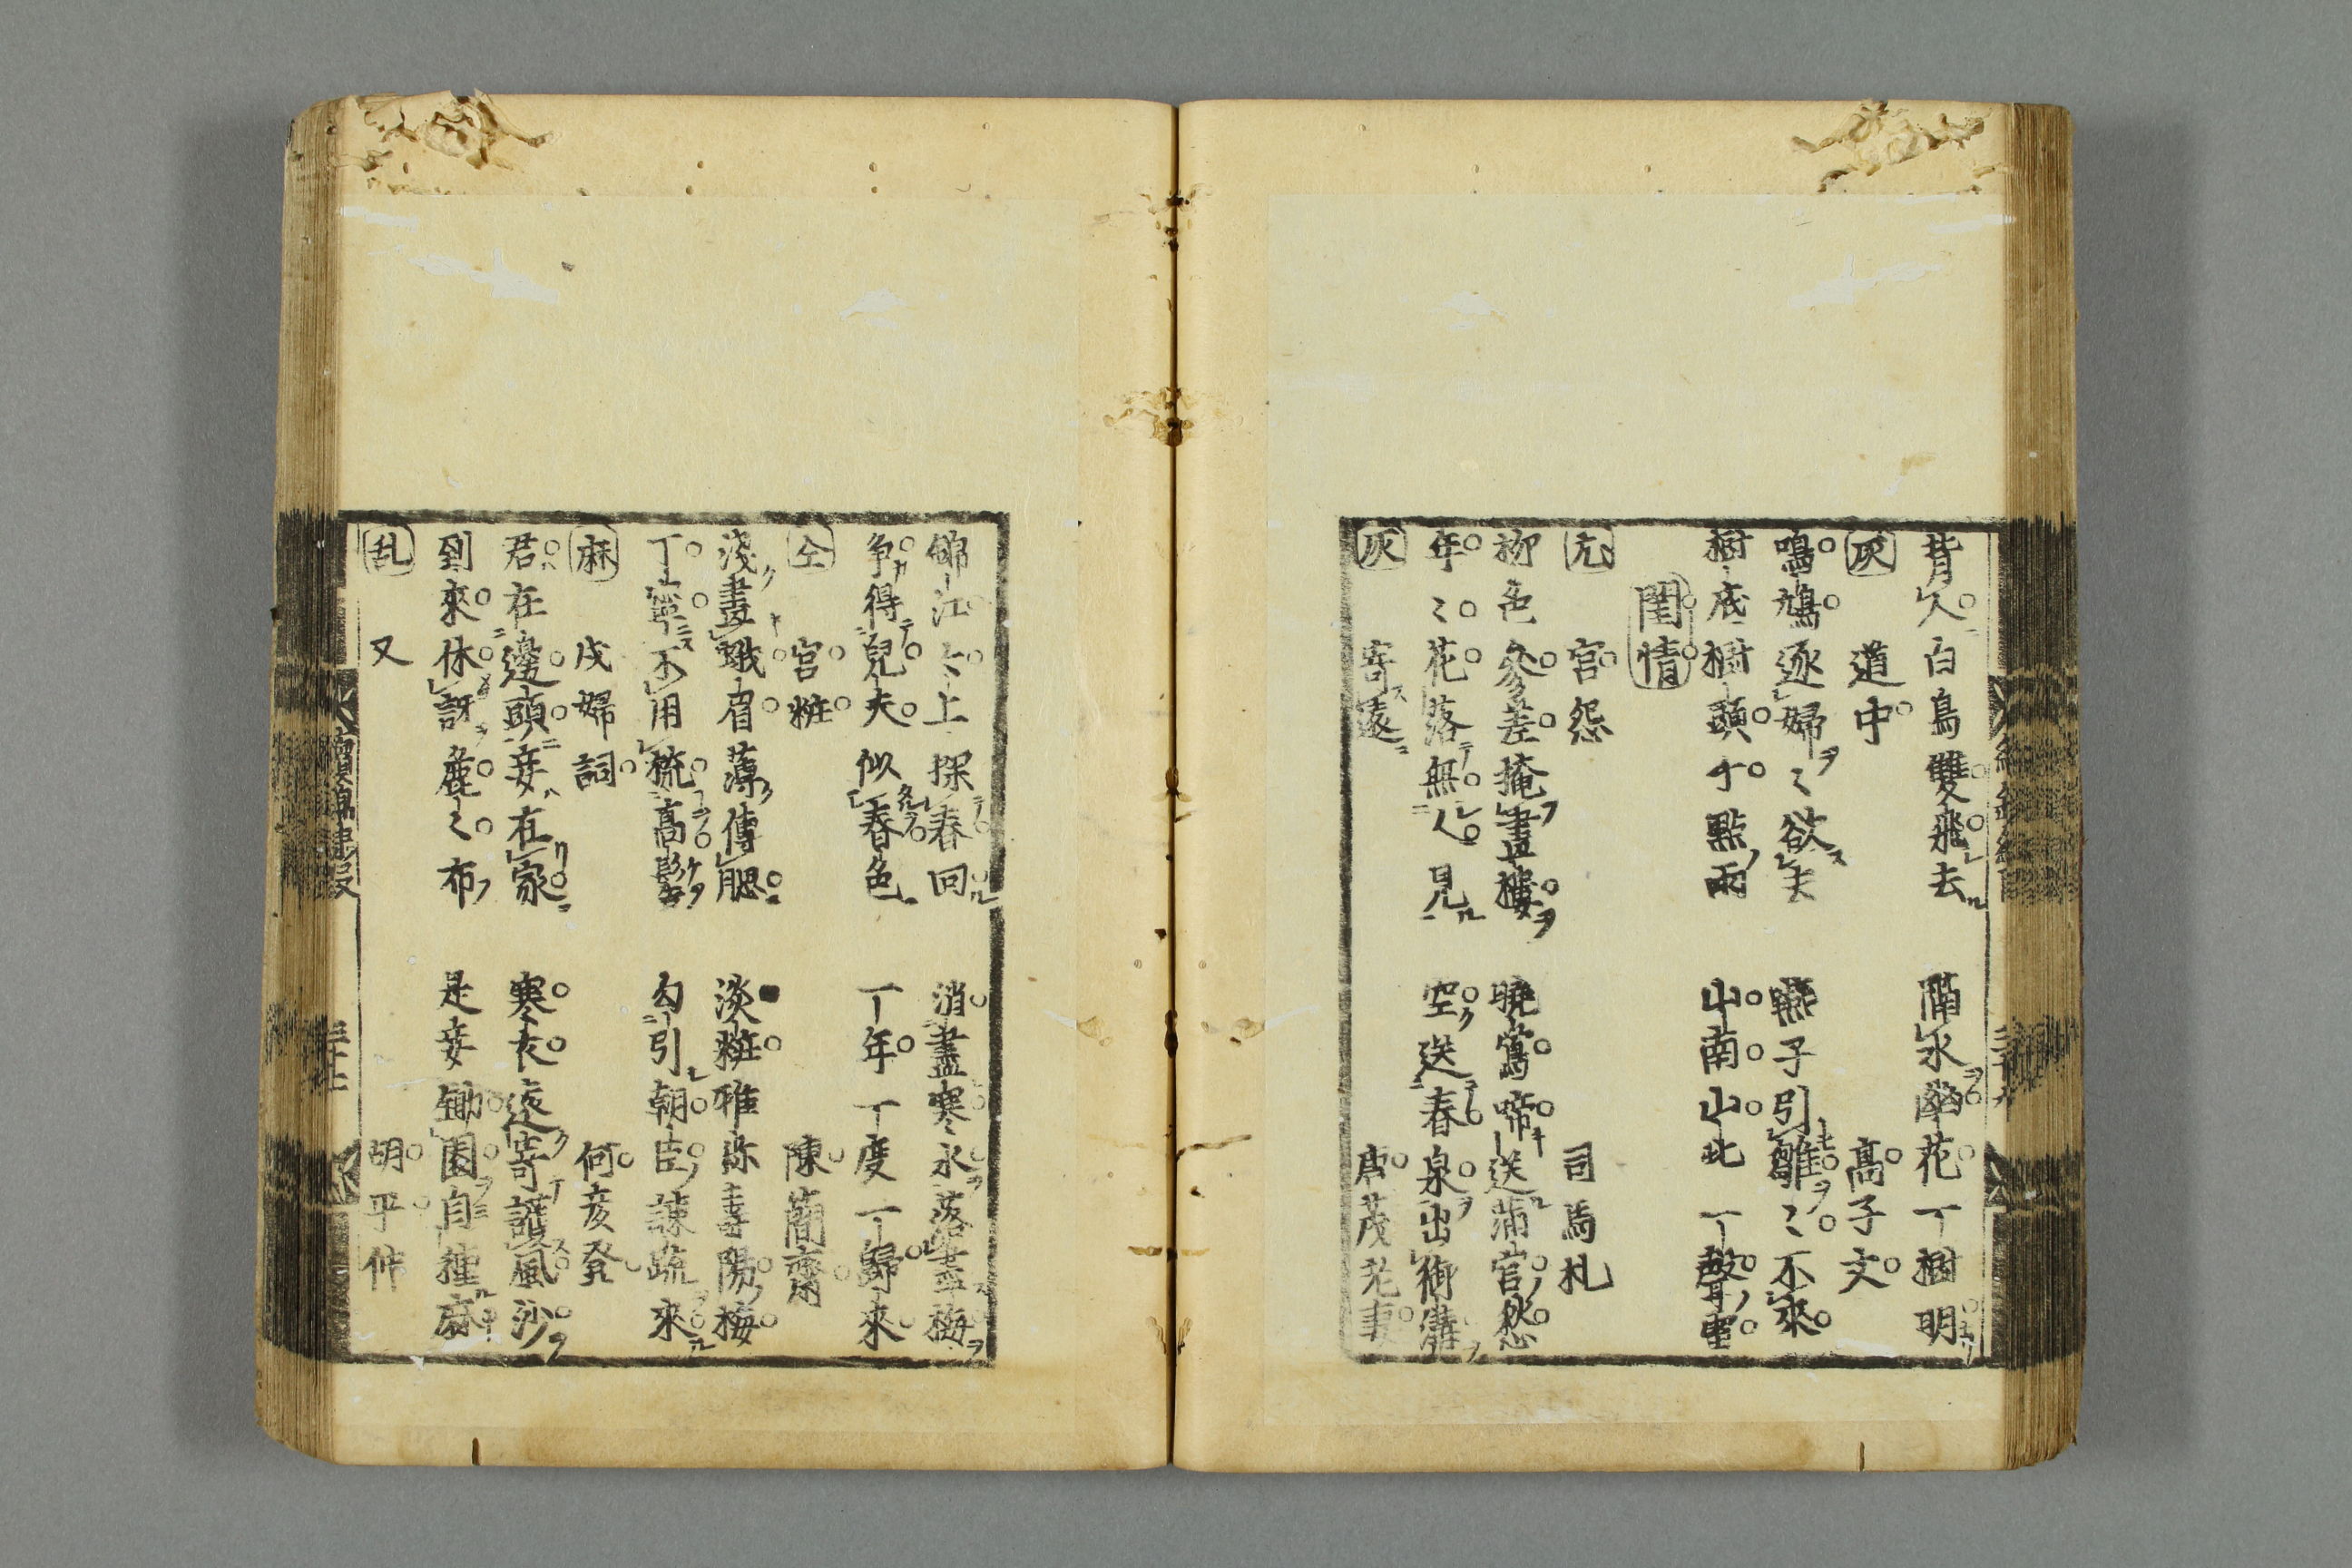 背人白鳥雙飛去　隔水幽花一樹明
灰　道中　高子文
鳴鳩逐婦〻欲夫　燕子引雛〻不來
樹底樹頭千點雨　山南山北一聲雷
閨情
尤　宮怨　司馬札
柳色參差掩畫樓　曉鶯啼送滿宮愁
年〻花落無人見　空送春泉出御溝
灰　寄遠　唐茂先妻
錦江〻上探春回　消盡寒氷落盡梅
爭得兒夫似春色　一年一度一歸來
仝　宮粧　陳簡齋
淺畫蛾眉薄傅腮　淡粧雅称壽陽梅
丁寧不用梳高髻　勾引朝臣諫疏來
麻　戍婦詞　何彦発
君在邊頭妾在家　寒衣遠寄護風沙
到來休訝麁〻布　是妾鋤園自種麻
乱　又　胡平仲